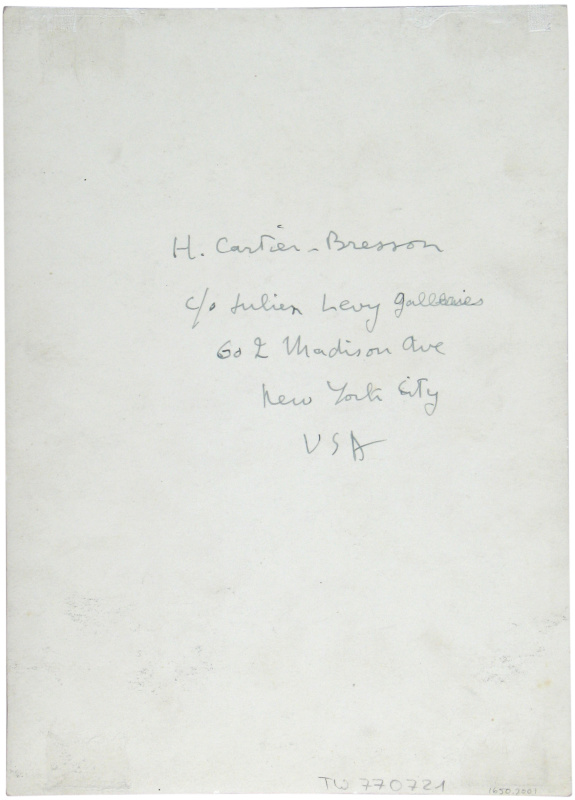 H. Cartier-Bresson
c/o Julien Levy galleries
602 Madison Ave
New York City
USA
TW 770721